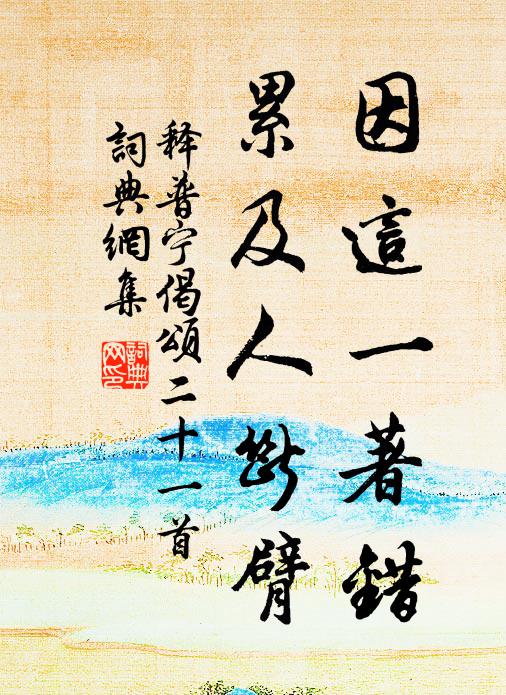 因這一著錯
累及人斷臂
释普宁偈頌二十一首
詞典網集
詞典
网印